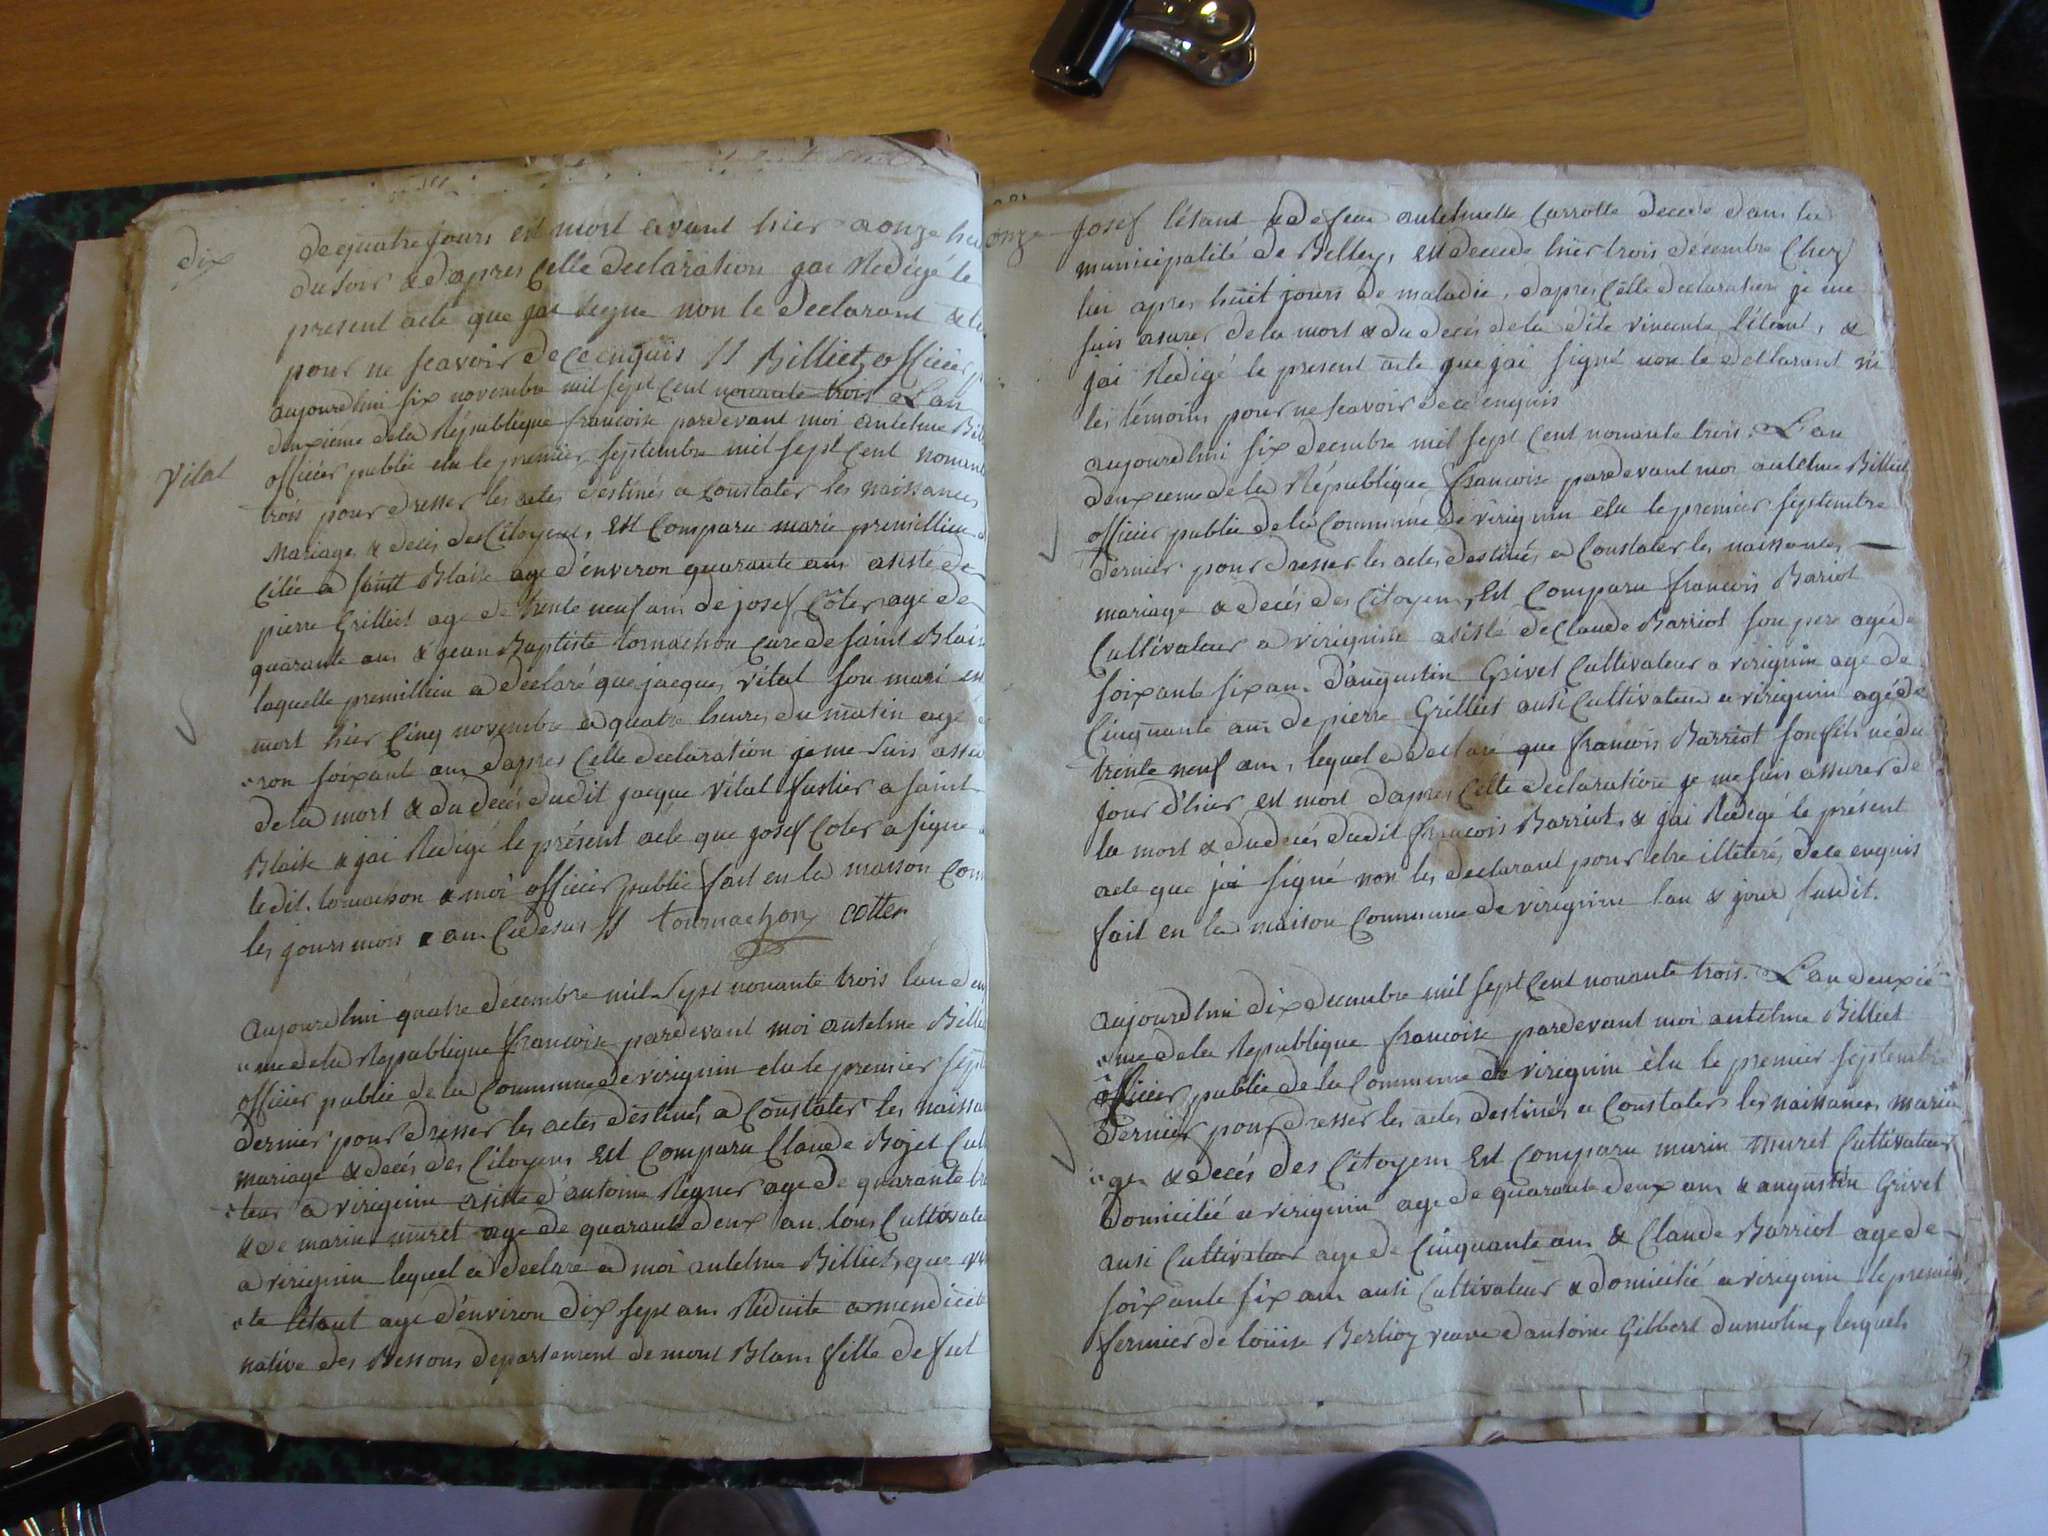 dix
de quatre jours est mort avant hier a onze heu
du soir & d'apres cette declaration jai Redigé le
present acte que jai signe non le declarant &
pour ne scavoir de ce enquis // Billiet officier
aujourdhui six novembre mil sept cent nonante trois L'an
deuxieme de la Republique francoise pardevant moi antelme Bil
officier public elu le premier septembre mil sept cent nonant
Vital
trois pour dresser les actes destinés a Constater les naissances
Mariages & decès des Citoyens, est Comparu marie premillieu
a saint Blaise age d'environ quarante ans asisté de
pierre Grilliet age de trente neuf ans de josef Coter age de
quarante ans & jean Baptiste tornachon Curé de saint Blais
laquelle premillieu a déclaré que jacques Vital son mari est
mort hier Cinq novembre a quatre heures du matin agé
-ron soixante ans d'apres Cette declaration je me suis assu
de la mort & du decés dudit jacque Vital fustier a saint
Blaise & jai Redigé le présent acte que josef Coter a signe
le dit tornachon & moi officier public fait en la maison Com
les jours mois & an Cidesus // tournachon cotter
aujourdhui quatre decembre mil sept nonante trois lan deu
-me de la Republique francoise pardevant moi antelme Billie
officier public de la Commune de virignin elu le premier sept
dernier pour dresser les actes destinés a Constater les naissa
mariage & decés des Citoyens est Comparu Claude Bojet Cul
-teur a virignin asisté d'antoine Regner age de quarante
& de marin muret age de quarante deux ans tous Cultivate
a virignin lequel a declare a moi antelme Billiet, que
-te létant age d'environ dix sept ans Reduite a mendicité
native des Bessons departement de mont Blanc fille de fut
onze
Josef létant & de feue antelmette Carrotte decede dans la
municipalité de Belley, est decede hier trois décembre Chez
lui apres huit jours de maladie, d'apres Cette declaration je me
suis asurer de la mort & du decés de la dite vincente létant, &
jai Redigé le present acte que jai signé non le declarant ni
les témoins pour ne scavoir de ce enquis
aujourdhui six decembre mil sept Cent nonante trois. L'an
deuxieme de la République francoise pardevant moi antelme Billiet
officier public de la Commune de virignin élu le premier septembre
dernier pour dresser les actes destinés a Constater les naissances
mariage & decés des Citoyens, Est Comparu francois Bariot
Cultivateur a virignin asisté de Claude Barriot son pere age de
soixante six ans d'augustin Grivet Cultivateur a virignin age de
Cinquante ans de pierre Grilliet ausi Cultivateur a virignin agé de
trente neuf ans, lequel a declaré que francois Barriot son fils né du
jour d'hier est mort d'apres Cette declaration je me suis assurer de
la mort & du decés dudit francois Barriot, & jai Redigé le présent
acte que jai signé non les declarant pour etre illeteré, de ce enquis
fait en la maison Commune de virignin lan & jour susdit.
aujourdhui dix decembre mil sept Cent nonante trois. L'an deuxié
-me de la Republique francoise pardevant moi antelme Billiet
officier public de la Commune de virignin élu le premier septembre
dernier pour dresser les actes destinés a Constater les naissances maria
-ge & decés des Citoyens Est Comparu marin muret Cultivateur
domicilié a virignin age de quarante deux ans & augustin Grivet
ausi Cultivateur age de Cinquante ans & Claude Barriot age de
soixante six ans ausi Cultivateur & domicilié a virignin le premier
fermier de loüise Berlioz veuve d'antoine Gibbert dumolin, lequels